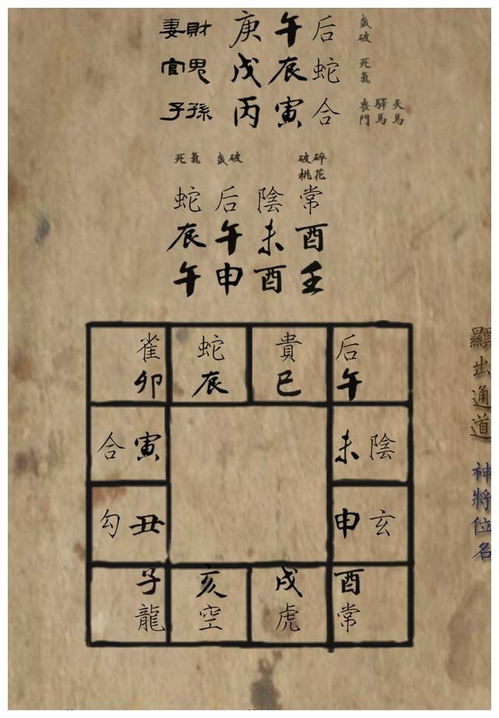 妻財 庚午 后 歲破
官鬼 戊辰 蛇 死氣
子孫 丙寅 合 喪門 驛馬 天馬
死氣 歲破 破碎
桃花
蛇 后 陰 常
辰 午 未 酉
午 申 酉 壬
雀 蛇 貴 后
卯 辰 巳 午
合 寅 未 陰
勾 丑 申 玄
子 亥 戌 酉
龍 空 虎 常
顯出通道 神將位名